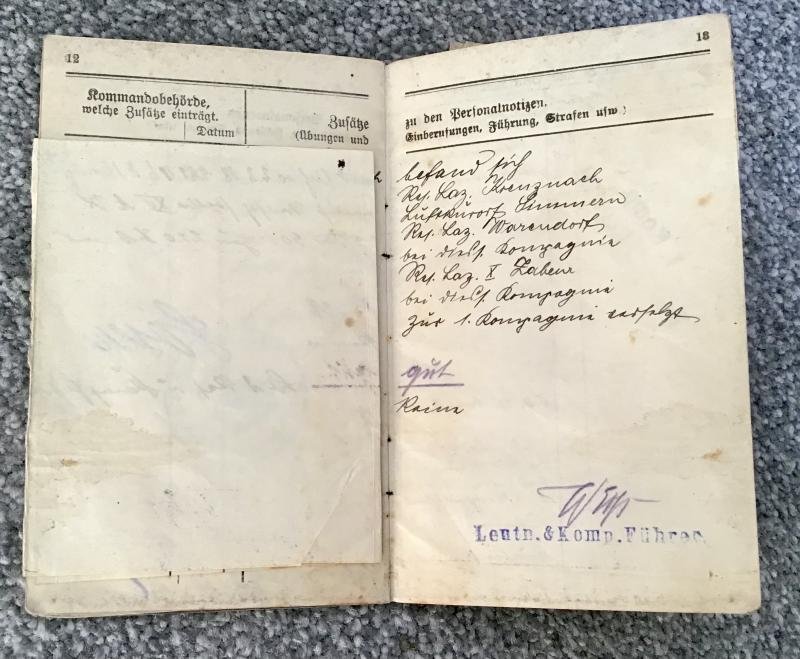 12
Kommandobehörde,
welche Zusätze einträgt.
Datum
Zusätze
(Übungen und
13
zu den Personalnotizen.
Einberufungen, Führung, Strafen usw.)
befand sich
Res. Laz. Kreuznach
Luftkurort Simmern
Res. Laz. Warendorf
bei dies. Kompagnie
Res. Laz. I Zabern
bei dies. Kompagnie
zur 1. Kompagnie versetzt
gut
Keine
Leutn. & Komp. Führer.